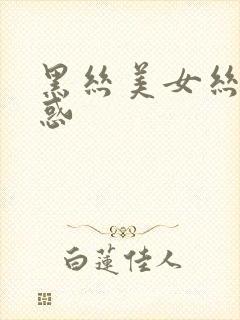 黑丝美女丝
惑
白莲佳人